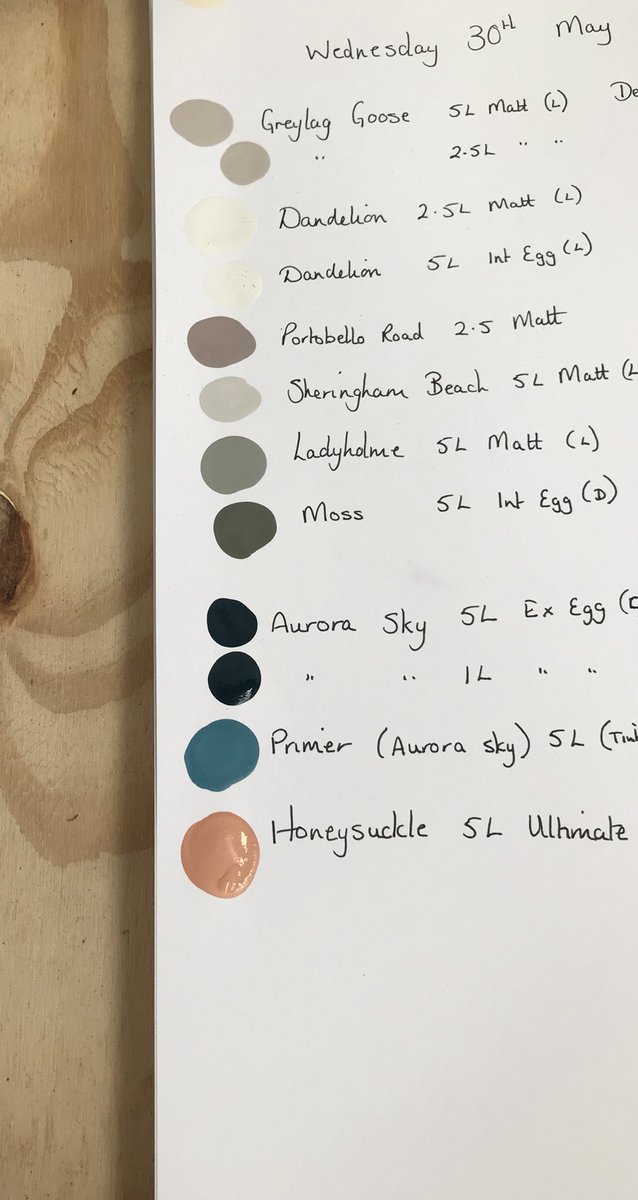 Wednesday 30TH May
Greylag Goose 5L Matt (L) De
" 2.5L " "
Dandelion 2.5L Matt (L)
Dandelion 5L Int Egg (L)
Portobello Road 2.5 Matt
Sheringham Beach 5L Matt (L
Ladyholme 5L Matt (L)
Moss 5L Int Egg (D)
Aurora Sky 5L Ex Egg (D
" " 1L " "
Primer (Aurora sky) 5L (Tint
Honeysuckle 5L Ultimate